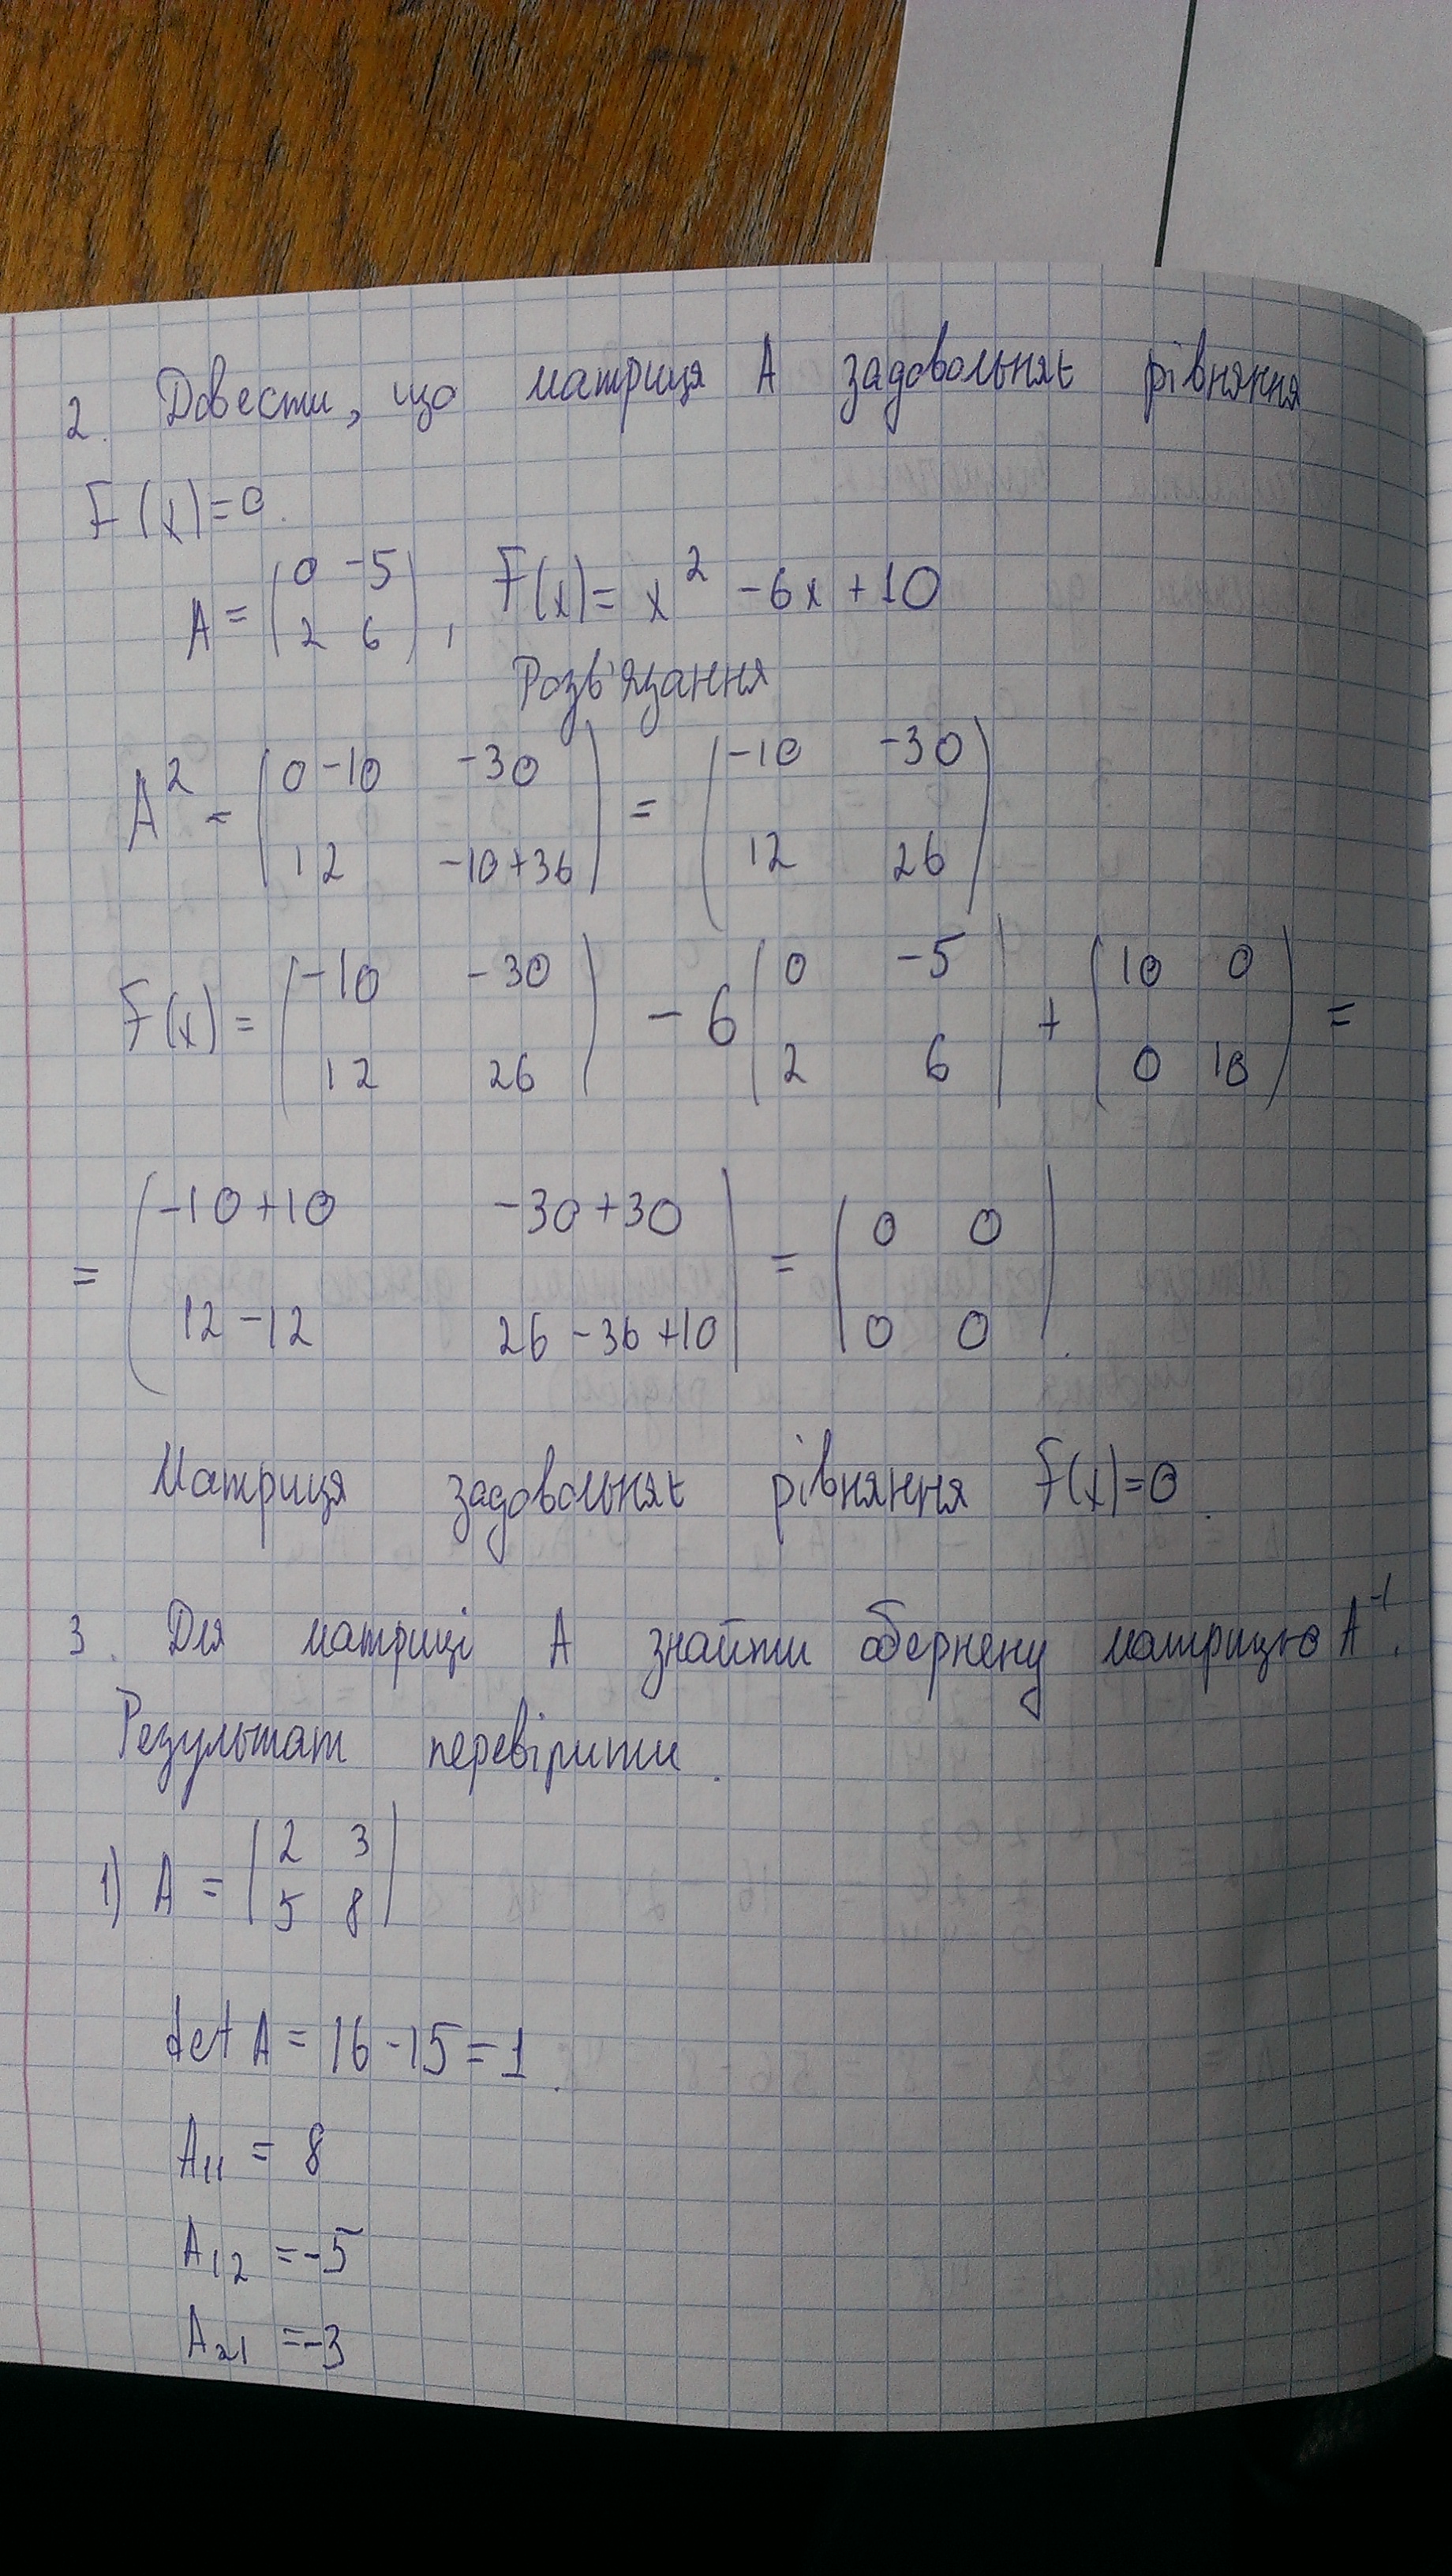 2. Довести, що матриця А задовольняє рівняння
F(x)=0.
A = (0 -5
2 6), F(x)= x² -6x +10
Розв'язання
A² = (0-10 -30
12 -10+36) = (-10 -30
12 26)
F(x) = (-10 -30
12 26) - 6 (0 -5
2 6) + (10 0
0 10) =
= (-10+10 -30+30
12-12 26-36+10) = (0 0
0 0).
Матриця задовольняє рівняння F(x)=0.
3. Для матриці А знайти обернену матрицю A⁻¹.
Результат перевірити.
1) A = (2 3
5 8)
det A = 16-15=1.
A₁₁ = 8
A₁₂ =-5
A₂₁ =-3